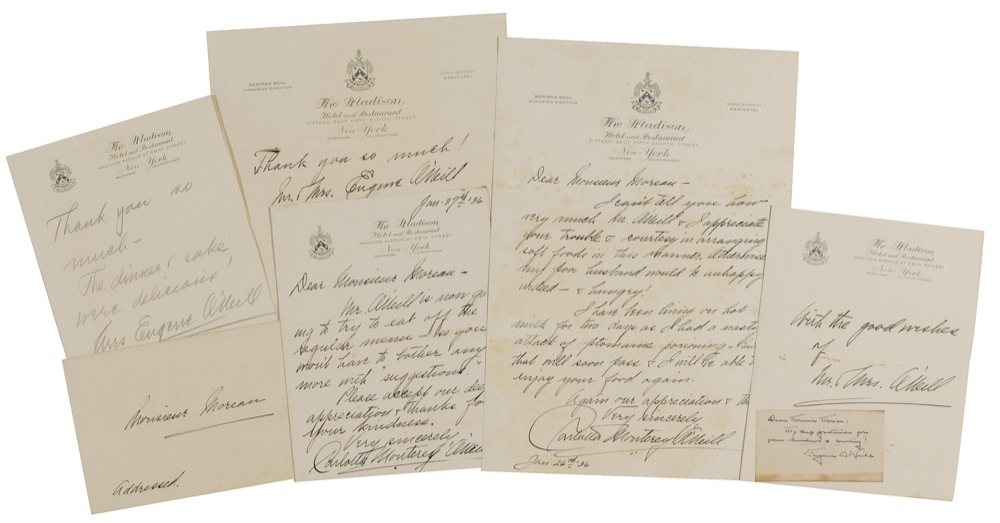 The Madison
Hotel and Restaurant
MADISON AVENUE AT NEW STREET
New-York
Thank you so
much-
The dinner &
were delicious!
Mrs Eugene O'Neill
BERTRAM WEAL
MANAGING DIRECTOR
CABLE ADDRESS
MADISOTEL
The Madison
Hotel and Restaurant
FIFTEEN EAST FIFTY EIGHTH STREET
New-York
Thank you so much!
Mr. & Mrs. Eugene O'Neill
Monsieur Moreau
Addressed.
Jan. 27th '36
The Madison
Hotel and Restaurant
New-York
Dear Monsieur Moreau-
Mr. O'Neill is now go
ing to try to eat off the
regular menu- so you
won't have to bother any
more with "suggestions."
Please accept our deep
appreciation & thanks for
your kindness.
Very sincerely
Carlotta Monterey O'Neill
MANAGING DIRECTOR
The Madison
Hotel and Restaurant
FIFTEEN EAST FIFTY EIGHTH STREET
New-York
Dear Monsieur Moreau-
I can't tell you how
very much Mr. O'Neill & I appreciate
your trouble & courtesy in arranging
soft foods in this manner. Otherwise
my poor husband would be unhappy
indeed- & hungry!
I have been living on hot
milk for two days as I had a nasty
attack of ptomaine poisoning-
that will soon pass & I will be able
enjoy your food again.
Again our appreciation &
Very sincerely
Carlotta Monterey O'Neill
Jan 26th '36
The Madison
Hotel and Restaurant
New-York
With the good wishes
of
Mr. & Mrs. O'Neill
Dear
My deep gratitude for
your kindness &
Eugene O'Neill